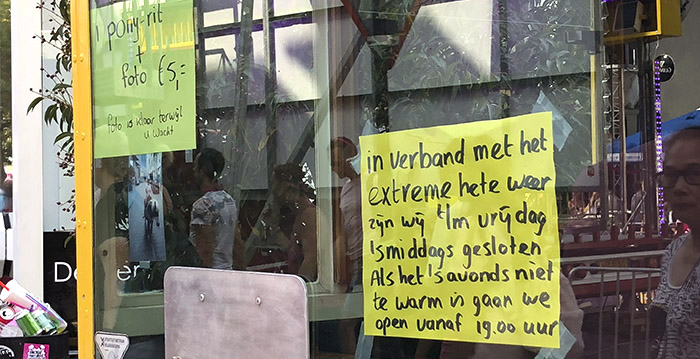 1 pony-rit
+
foto €5,=
foto is klaar terwijl
u wacht
in verband met het
extreme hete weer
zijn wij t/m vrijdag
'smiddags gesloten
Als het 's avonds niet
te warm is gaan we
open vanaf 19.00 uur